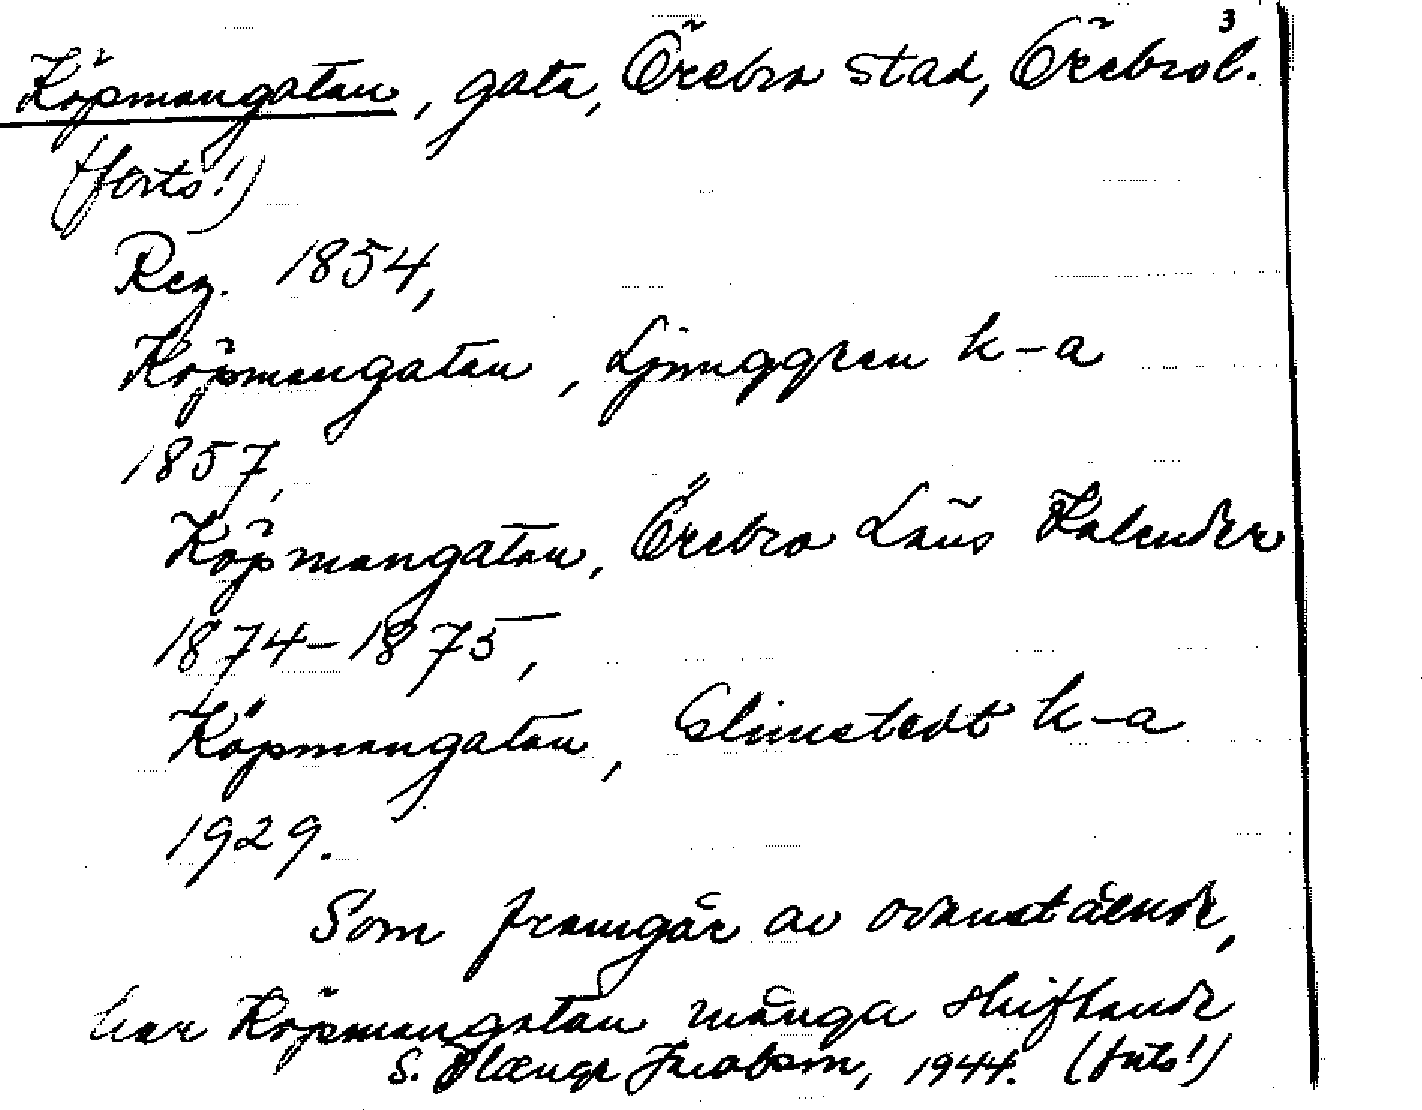 3
Köpmangatan, gata, Örebro stad, Örebrol.
(forts!)
Reg. 1854,
Köpmangatan, Ljunggren k-a
1857,
Köpmangatan, Örebro Läns Kalender
1874-1875,
Köpmangatan, Elmstedt k-a
1929.
Som framgår av ovanstående,
har Köpmangatan många skiftande
S. Jacobson, 1944. (forts!)